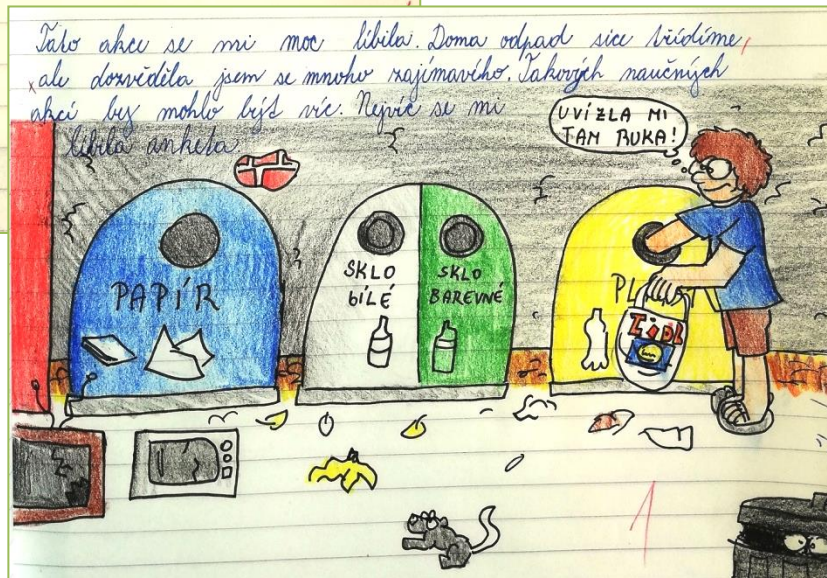 Tato akce se mi moc líbila. Doma odpad sice třídíme,
ale dozvěděla jsem se mnoho zajímavého. Takových naučných
akcí by mohlo být víc. Nejvíc se mi
líbila anketa.
UVÍZLA MI
TAM RUKA!
PAPÍR
SKLO
BÍLÉ
SKLO
BAREVNÉ
1